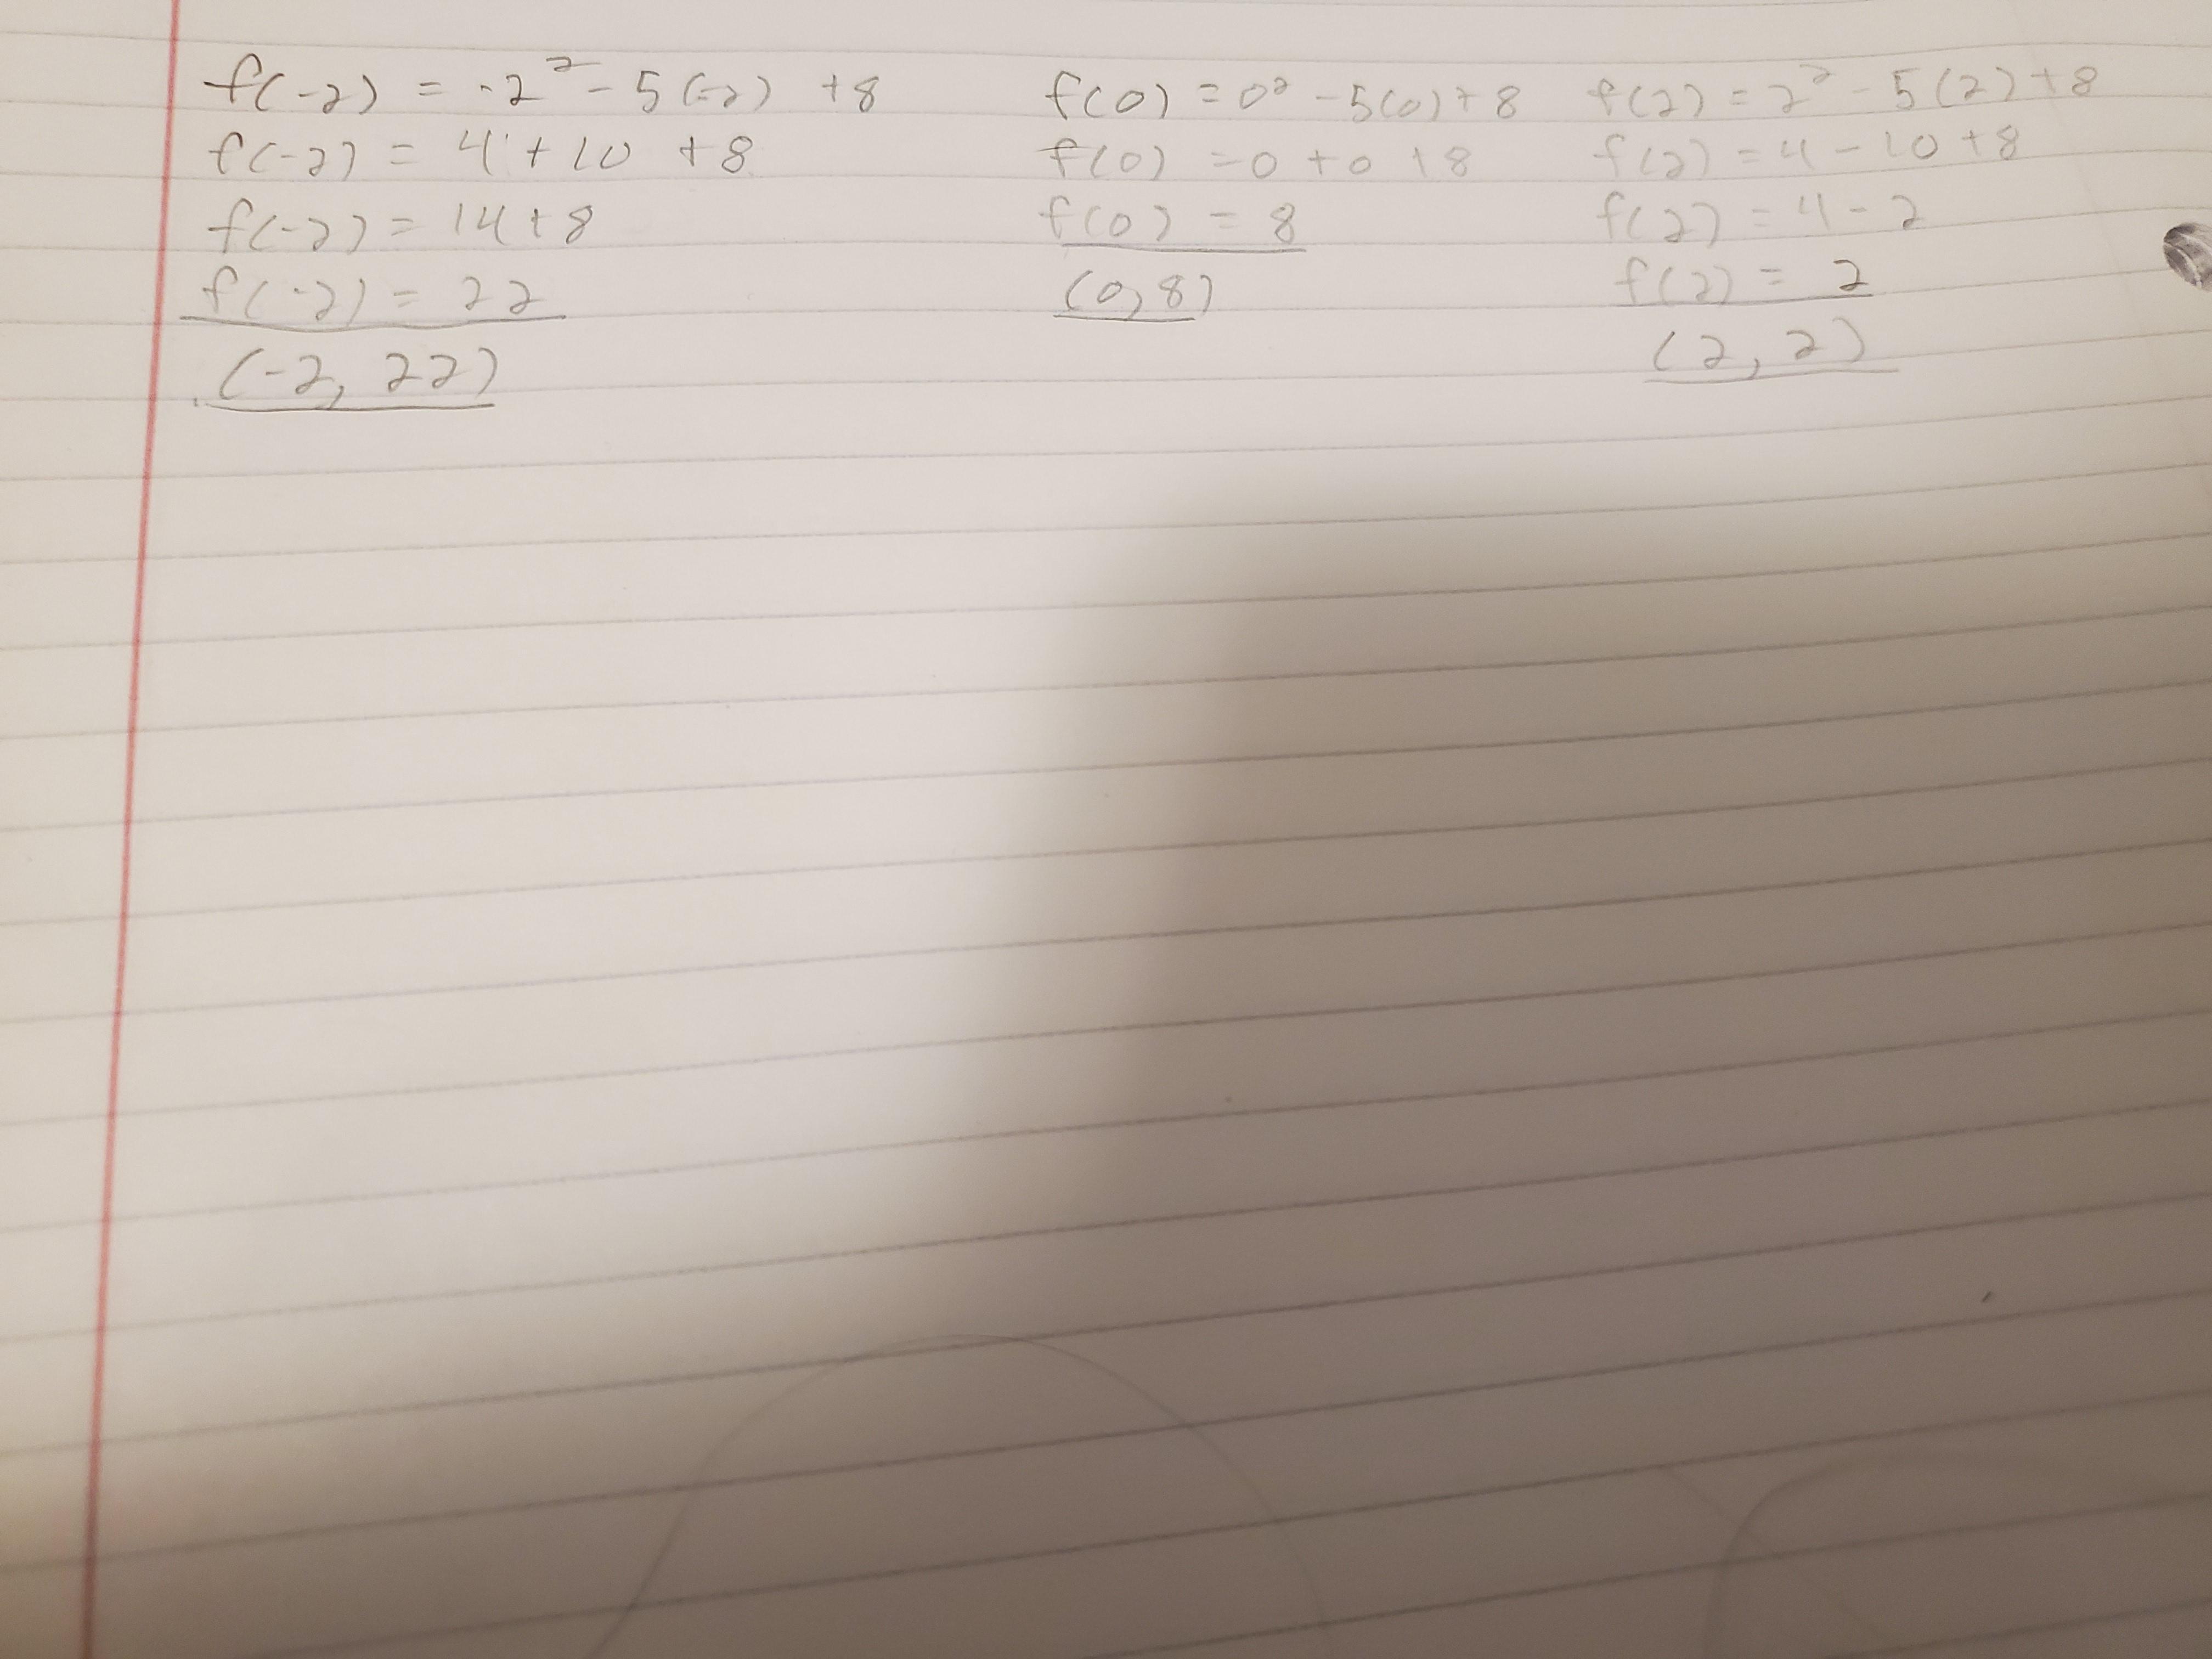 f(-2) = -2² - 5(-2) +8
f(-2) = 4 + 10 + 8
f(-2) = 14 + 8
f(-2) = 22
(-2, 22)
f(0) = 0² - 5(0) + 8
f(0) = 0 + 0 + 8
f(0) = 8
(0, 8)
f(2) = 2² - 5(2) + 8
f(2) = 4 - 10 + 8
f(2) = 4 - 2
f(2) = 2
(2, 2)